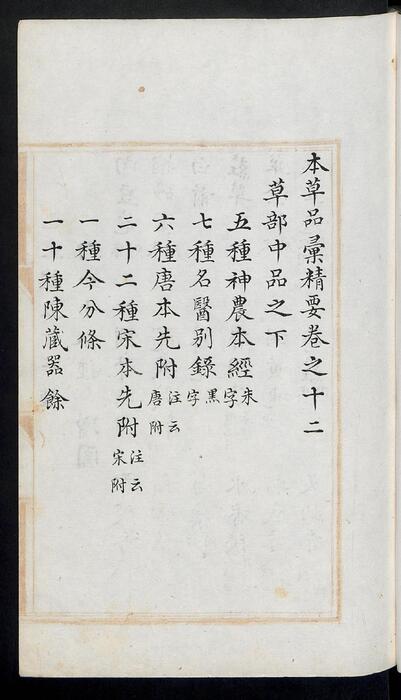 本草品彙精要卷之十二
草部中品之下
五種神農本經朱字
七種名醫別錄黑字
六種唐本先附注云唐附
二十二種宋本先附注云宋附
一種今分條
一十種陳藏器餘